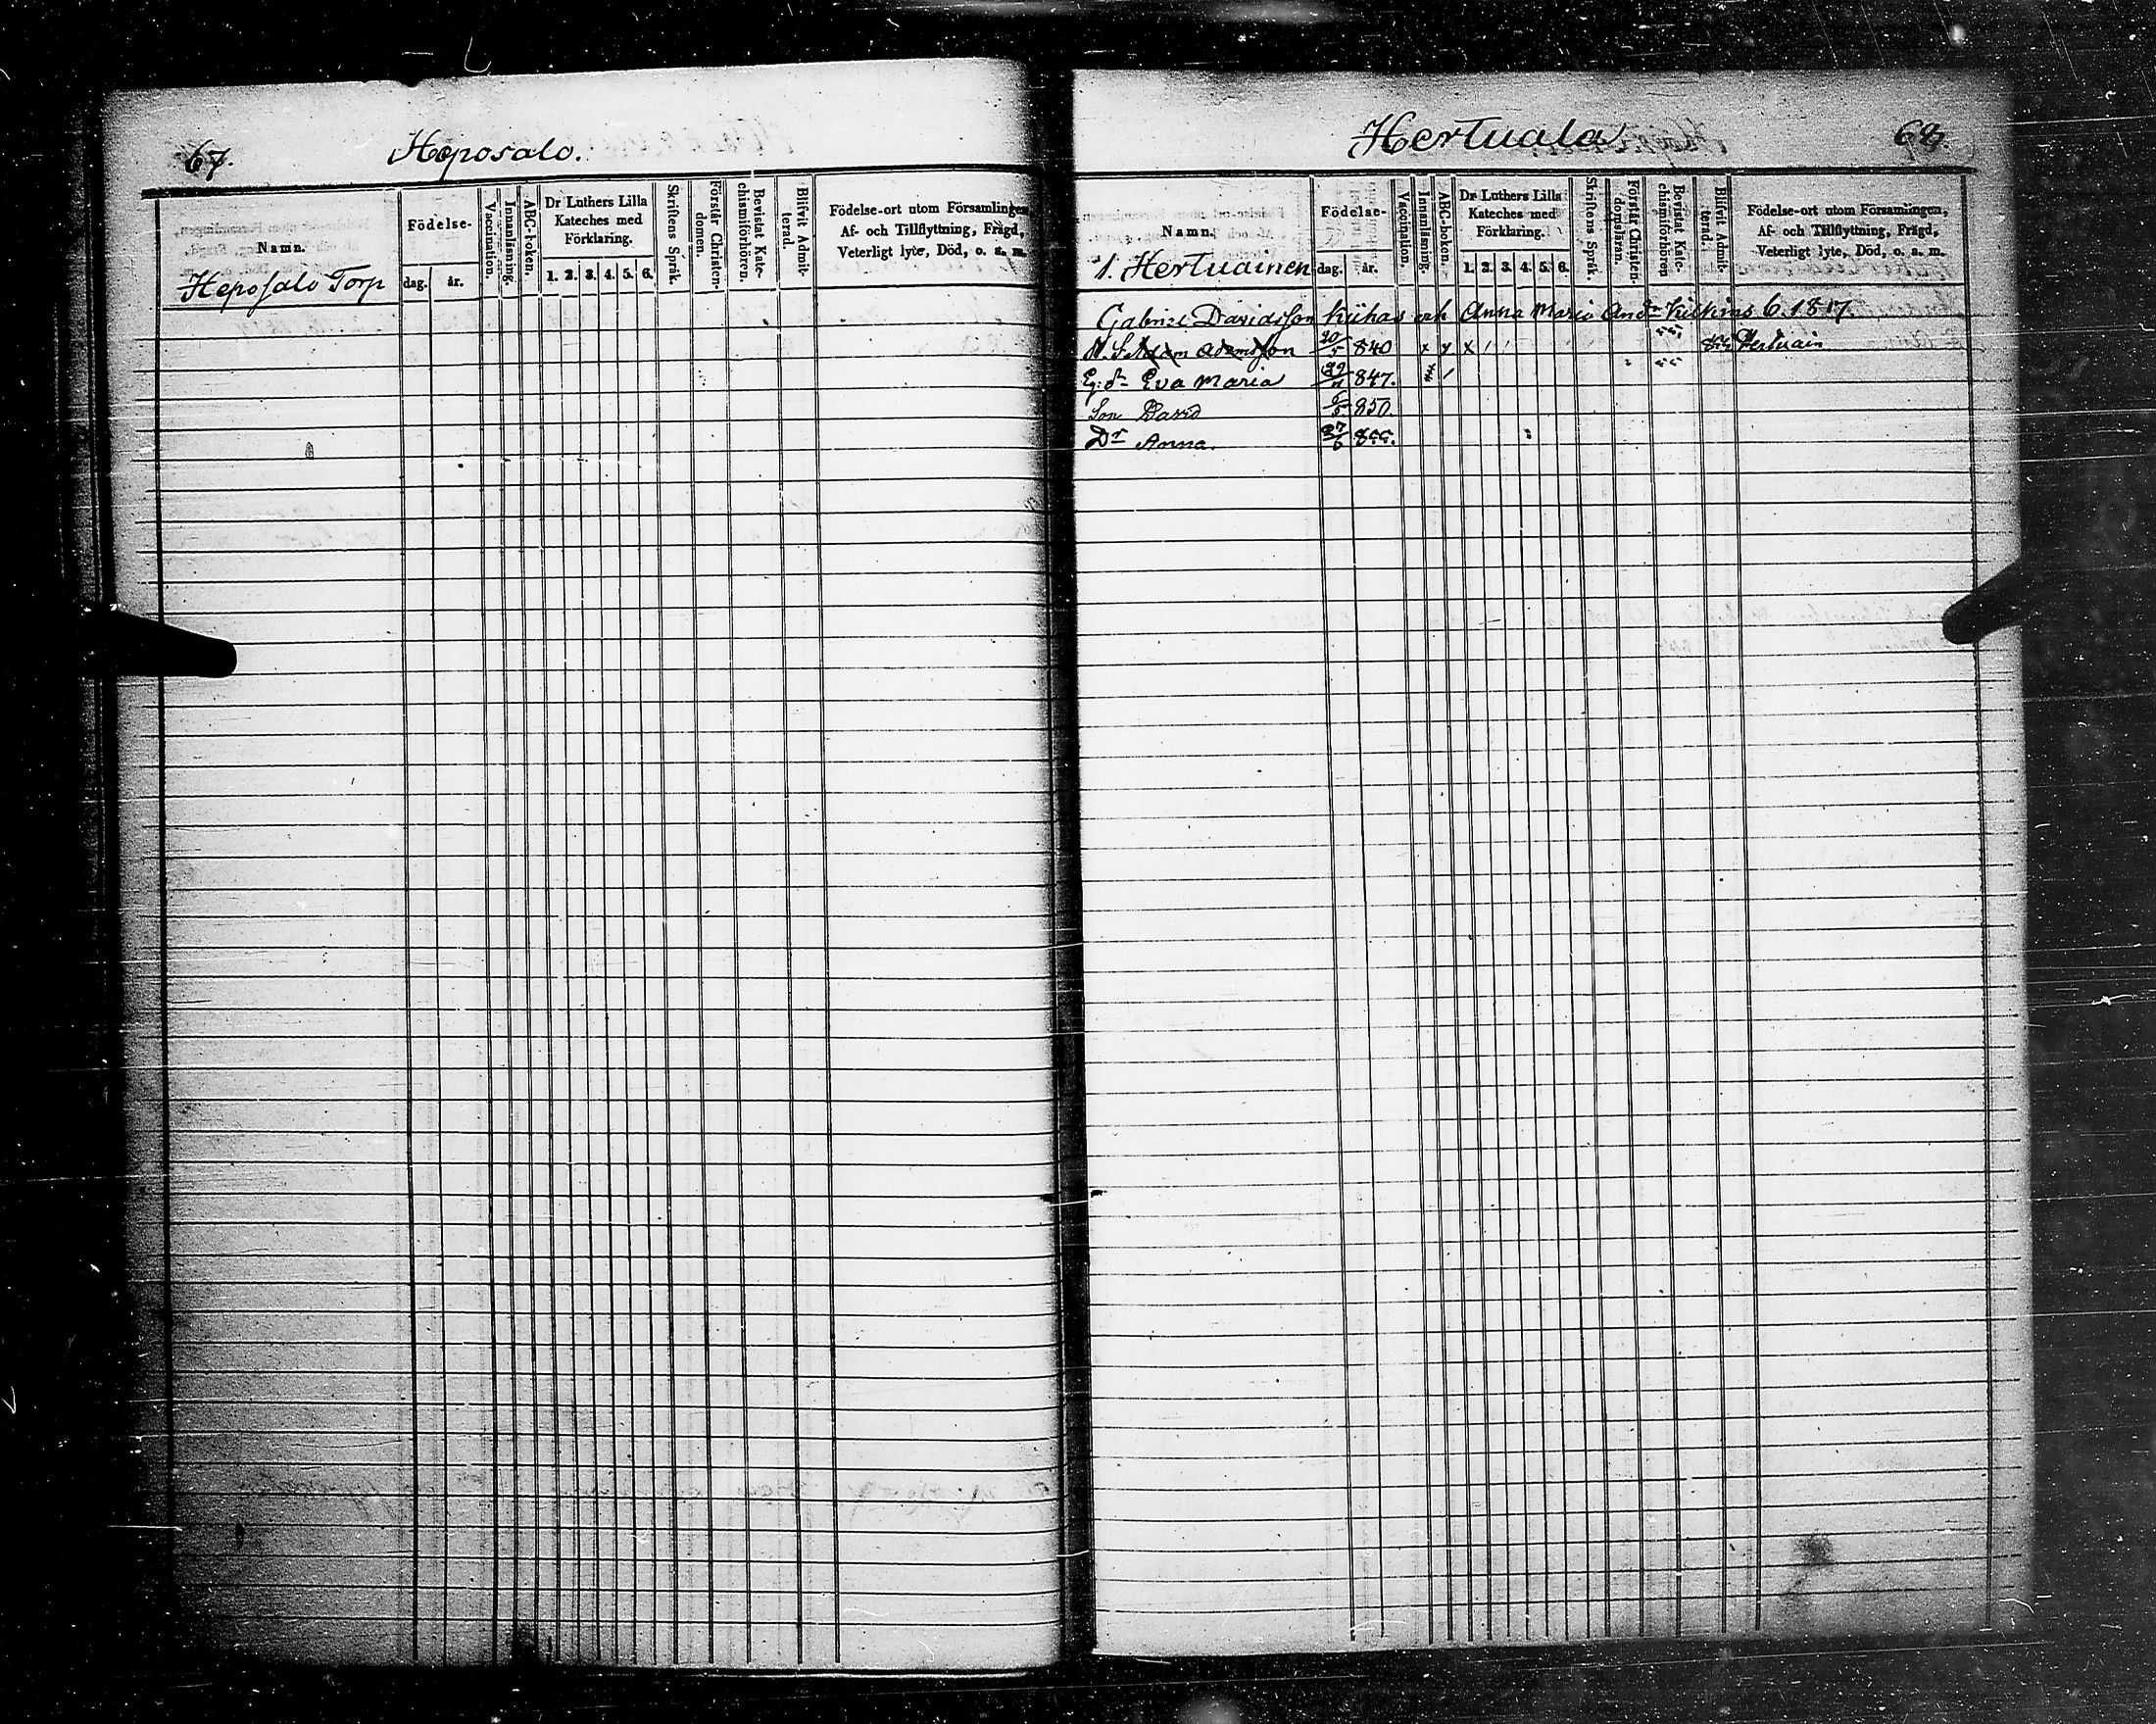 67.
Heposalo.
Namn.
Födelse-
dag.
år.
Vaccination.
Innanläsning.
ABC-boken.
Dr Luthers Lilla
Kateches med
Förklaring.
1. 2. 3. 4. 5. 6.
Skriftens Språk.
Förstår Christen-
domen.
Bevistat Kate-
chismiförhören.
Blifvit Admit-
terad.
Födelse-ort utom Församlingen,
Af- och Tillflyttning, Frägd,
Veterligt lyte, Död, o. s. m.
Heposalo Torp
Hertuala
68.
Namn.
Födelse-
dag.
år.
Vaccination.
Innanläsning.
ABC-boken.
Dr Luthers Lilla
Kateches med
Förklaring.
1. 2. 3. 4. 5. 6.
Skriftens Språk.
Förstår Christen-
domsläran.
Bevistat Kate-
chismiförhören
Blifvit Admit-
terad.
Födelse-ort utom Församlingen,
Af- och Tillflyttning, Frägd,
Veterligt lyte, Död, o. s. m.
1. Hertuainen
Gabriel Davidsson och Anna Maria 6. 1817.
Adam Adamsson 20/5 840 x x x / /
Eva Maria 847.
Son David 6/5 850.
Dr Anna. 27/6 855.